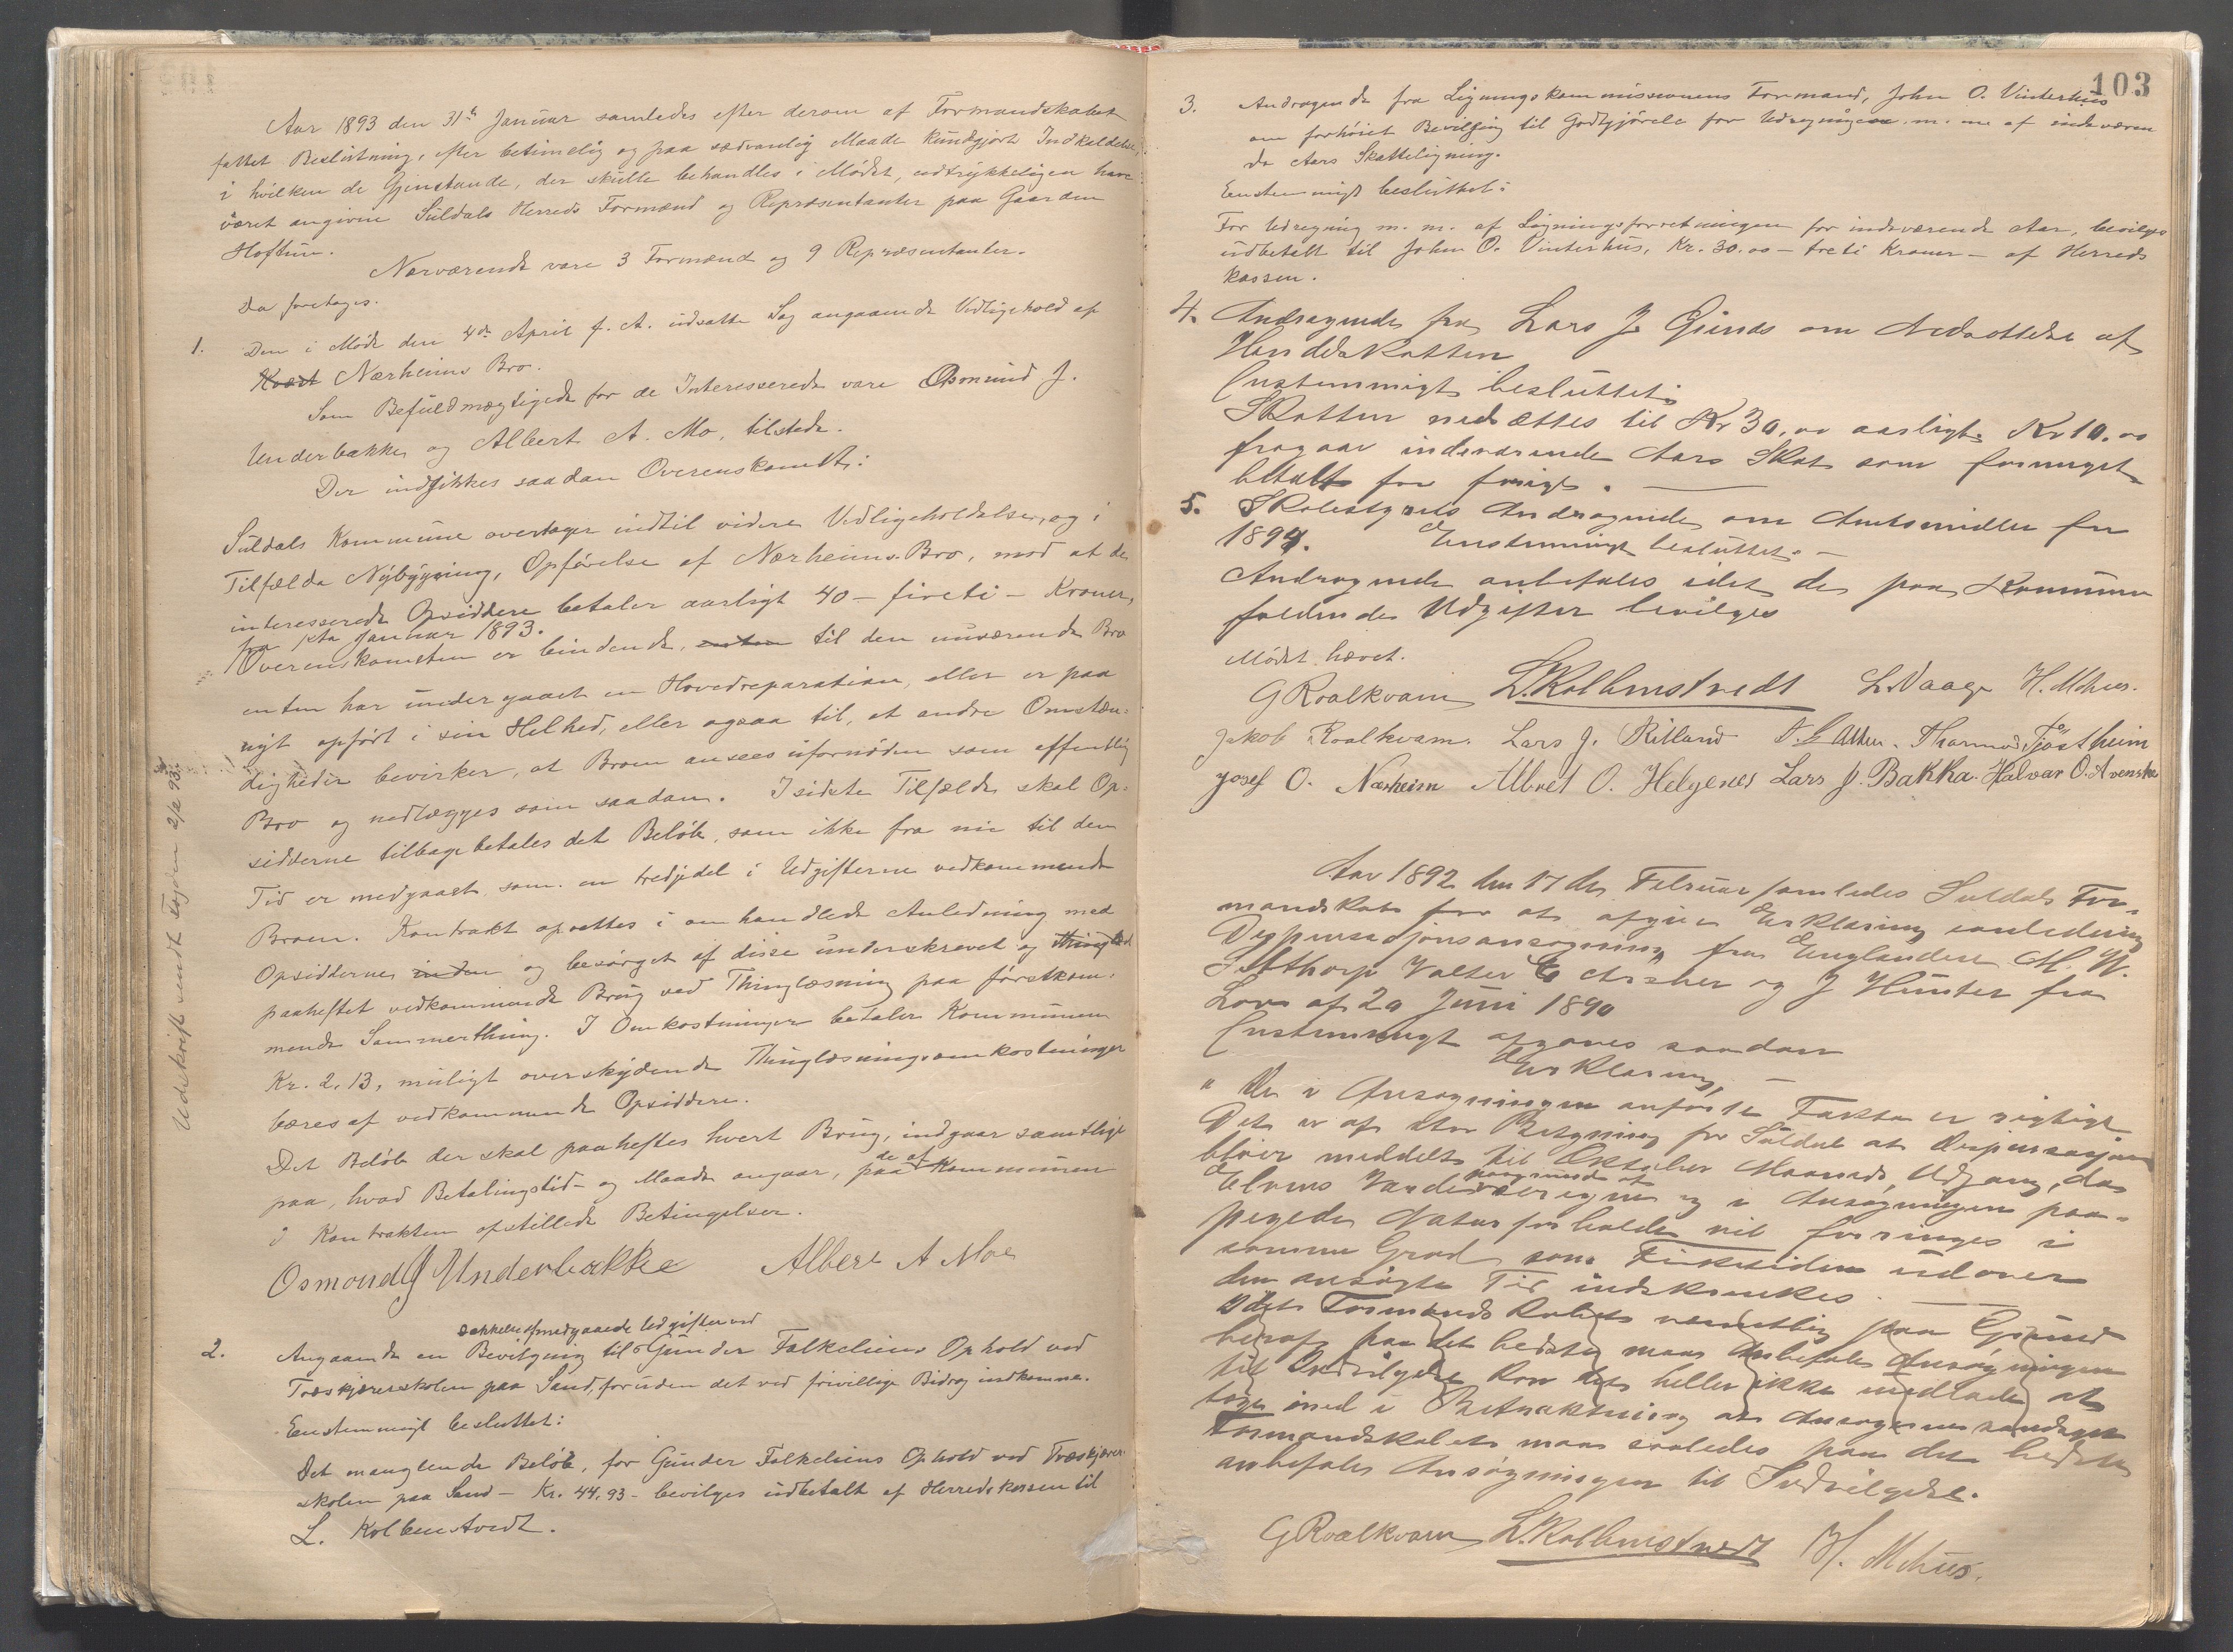 Aar 1893 den 31te Januar samledes efter derom af Formandskabet
fattet Beslutning, efter betimelig og paa sædvanlig Maade kundgjort Indkaldelse,
i hvilken de Gjenstande, der skulle behandles i Mødet, udtrykkeligen have
været angivne Suldals Herreds Formænd og Repræsentanter paa Gaarden
Hoftun.
Nærværende vare 3 Formænd og 9 Repræsentanter.
Da foretages.
1. Den i Møde den 4de April f. A. udsatte Sag angaaende Vedligehold af
Kvæst Nærheims Bro.
Som Befuldmægtigede for de Interesserede vare Osmund J.
Underbakke og Albert A. Mo, tilstede.
Der indgikkes saadan Overenskomst:
Suldals Kommune overtager indtil videre Vedligeholdelse, og i
Tilfælde Nybygning, Opførelse af Nærheims-Bro, mod at de
interesserede Opsiddere betaler aarligt 40 – fireti – Kroner,
fra 1ste Januar 1893.
Overenskomsten er bindende, enten til den nuværende Bro
enten har undergaaet en Hovedreparation, eller er paa
nyt opført i sin Helhed, eller ogsaa til, at andre Omstæn-
digheder bevirker, at Broen ansees ufornøden som offentlig
Bro og nedlægges som saadan. I sidste Tilfælde skal Op-
sidderne tilbagebetales det Beløb, som ikke fra nu til den
Tid er medgaaet som en tredjedel i Udgifterne vedkommende
Broen. Kontrakt oprettes i omhandlede Anledning med
Opsidderne inden og besørget af disse underskrevet og thinglæst
paaheftet vedkommende Brug ved Thinglæsning paa førstkom-
mende Sommerthing. I Omkostninger betaler Kommunen
Kr. 2,13, muligt overskydende Thinglæsningsomkostninger
bæres af vedkommende Opsiddere.
Det Beløb der skal paaheftes hvert Brug, indgaar samtlige
paa, hvad Betalingstid- og Maade angaar, paa de af Kommunen
i Kontrakten opstillede Betingelser.
Osmond J Underbakke Albert A Moe
Udskrift sendt Fogden 2/2 93.
2. Angaaende en Bevilgning til Dækkelse af medgaaede Udgifter ved Gunder Falkeliens Ophold ved
Træskjærerskolen paa Sand, foruden det ved frivillige Bidrag indkomne.
Enstemmigt besluttet:
Det manglende Beløb, for Gunder Falkeliens Ophold ved Træskjærer-
skolen paa Sand – Kr. 44,93 – bevilges udbetalt af Herredskassen til
L. Kolbenstvedt.
103
3. Andragende fra Ligningskommissionens Formand, John O. Vinterhus
om forhøiet Bevilging til Godtgjørelse for Udregningen m. m. af indeværen
de Aars Skatteligning.
Eenstemmigt besluttet:
For Udregning m. m. af Ligningsforretningen for indeværende Aar, bevilges
udbetalt til John O. Vinterhus, Kr. 30.00 – treti Kroner – af Herreds
kassen.
4. Andragende fra Lars J. Gunds om Nedsættelse af
Handelsskatten
Enstemmigt besluttet:
Skatten nedsættes til Kr 30.00 aarligt. Kr 10.00
fragaar indeværende Aars Skat som formeget
betalt for forrige.
5. Skolestyrets Andragende om Amtsmidler for
1894. Enstemmigt besluttet. –
Andragende anbefales idet de paa Kommunen
faldende Udgifter bevilges
Mødet hævet.
G Roalkvam L. Kolbenstvedt L. Vaage H. Mehus.
Jakob Roalkvam. Lars J. Rilland Thormod Tjøstheim
Josef O. Nærheim Albret O. Helgenes Lars J. Bakka. Halvar O. Kvenske
Aar 1892 den 17de Februar samledes Suldals For-
mandskab for at afgive Erklæring i anledning
Dispensasjonsansøgning fra Englænderne M. W.
Sibthorp Valter E Archer og J Hunter fra
Lov af 20 Juni 1890
Enstemmigt afgaves saadan
Erklæring, –
"De i Ansøgningen anførte Fakta er rigtige
Det er af stor Betydning for Suldal at Dispensasjon
bliver meddelt til Oktober Maaneds Udgang, da
Elvens Værdi paagrund af og i Ansøgningen paa-
pegede Naturforholde vil forringes i
samme Grad som Fisketiden udover
den ansøgte Tid indskrænkes. –
Idet Formandskabet væsentlig paa Grund
heraf paa det bedste maa anbefale Ansøgningen
til Indvilgelse kan det heller ikke undlade at
tage med i Betraktning at Ansøgerne
Formandskabet maa saaledes paa det bedste
anbefale Ansøgningen til Indvilgelse.
G Roalkvam L. Kolbenstvedt H. Mehus.